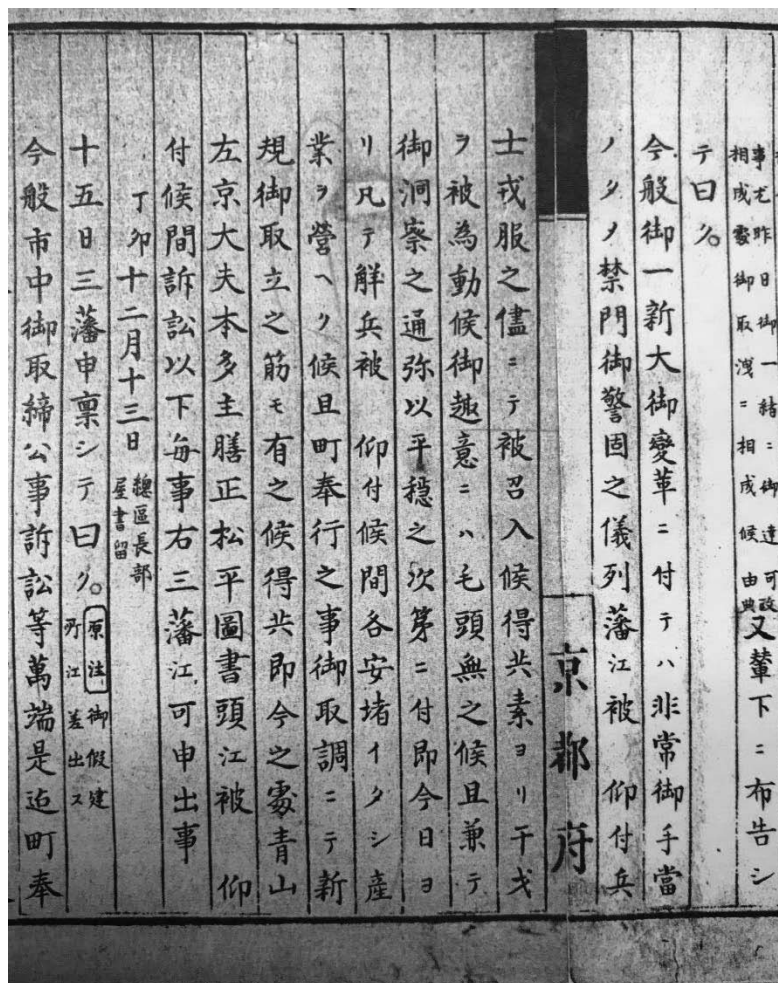 事尤昨日御一緒ニ御達可
相成處御取洩ニ相成候由典又輦下ニ布告シ
テ曰ク。
今般御一新大御變革ニ付テハ非常御手當
ノタメ禁門御警固之儀列藩江被　仰付兵
京都府
士戎服之儘ニテ被召入候得共素ヨリ干戈
ヲ被為動候御趣意ニハ毛頭無之候且兼テ
御洞察之通弥以平穏之次第ニ付即今日ヨ
リ凡テ觧兵被　仰付候間各安堵イタシ産
業ヲ營ヘク候且町奉行之事御取調ニテ新
規御取立之筋モ有之候得共即今之處青山
左京大夫本多主膳正松平圖書頭江被　仰
付候間訴訟以下每事右三藩江可申出事
丁卯十二月十三日
總區長部
屋書留
十五日三藩申禀シテ曰ク。
原注御假建
所江差出ス
今般市中御取締公事訴訟等萬端是迠町奉